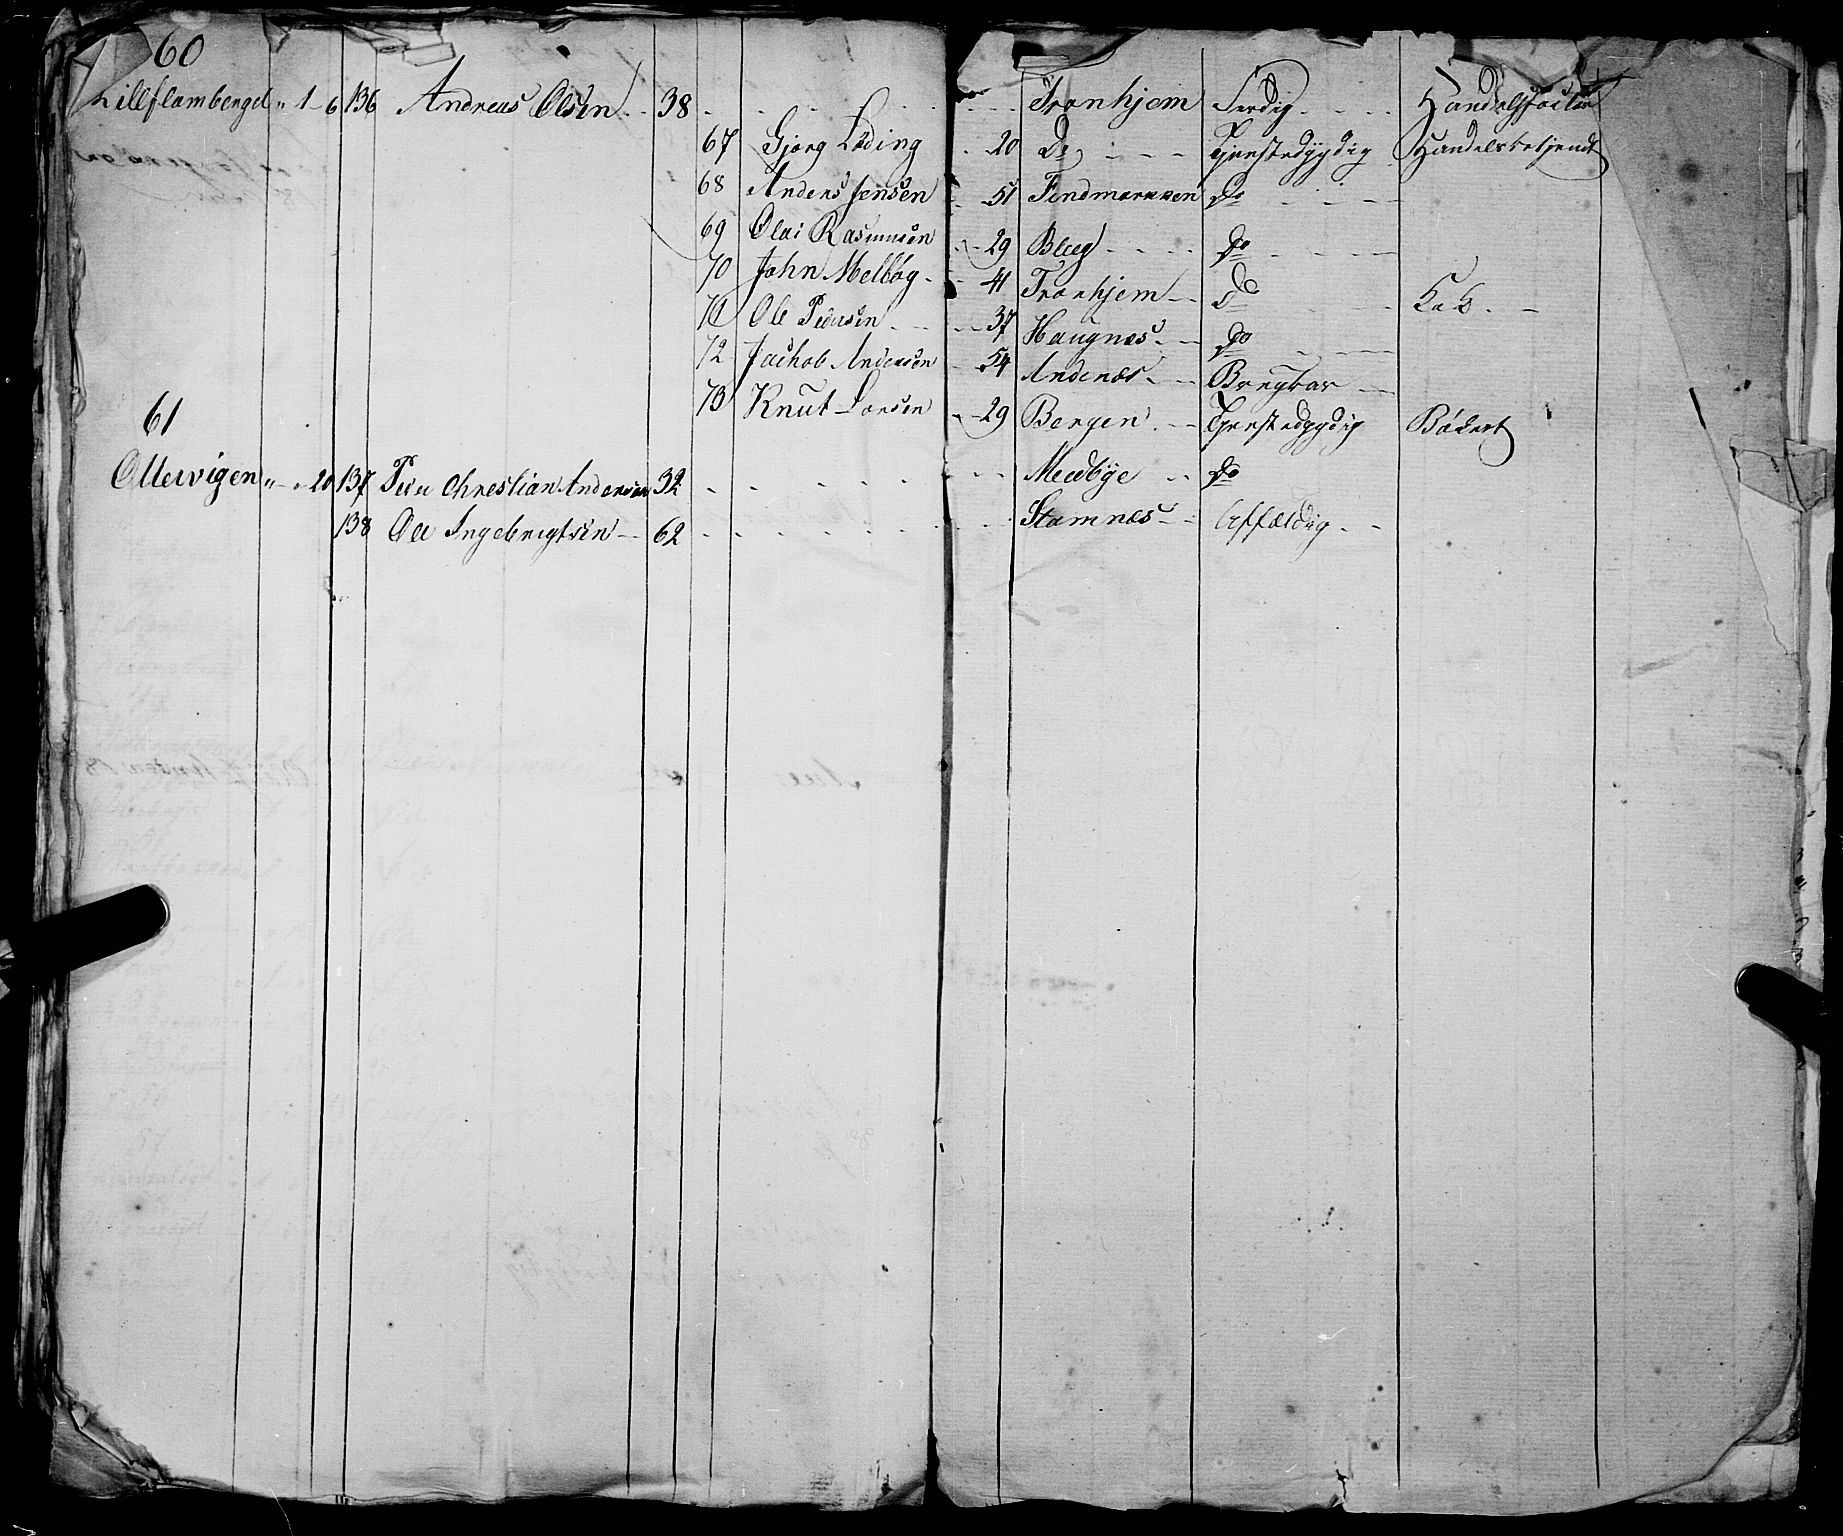 60
Lillflambergel " 1 - 6 136 Andreas Olsen 38 Tronhjem Ferdig Handelsfactor
67 Gjørg Løding 20 Do Tjenstedygdig Handelsbetjendt
68 Anders Jensen 51 Findmarken Do
69 Olai Rasmusen 29 Do
70 John Melbög 41 Tronhjem Do
71 Ole Pedersen 37 Haugnæs Do
72 Jachob Andersen 54 Andenæs
73 Knut Larsen 29 Bergen Tjenstedygdig Bödkert
61
Ollervigen " - 20 137 Peder Christian Andersen 32 Medbye Do
138 Ole Ingebrigtsen 62 Stamnæs Affældig